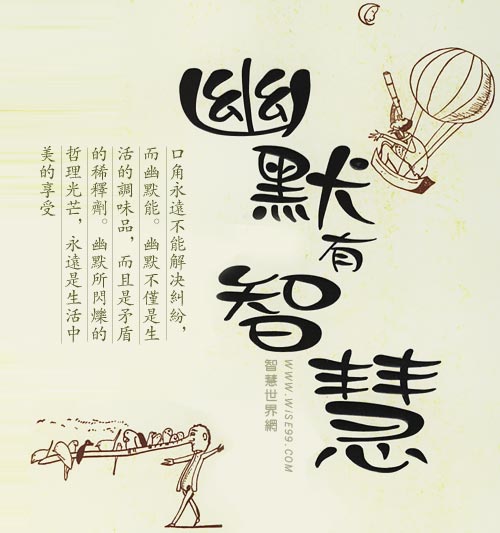 幽默有智慧
WWW.WiSE99.COM
智慧世界網
口角永遠不能解決糾紛，
而幽默能。幽默不僅是生
活的調味品，而且是矛盾
的稀釋劑。幽默所閃爍的
哲理光芒，永遠是生活中
美的享受